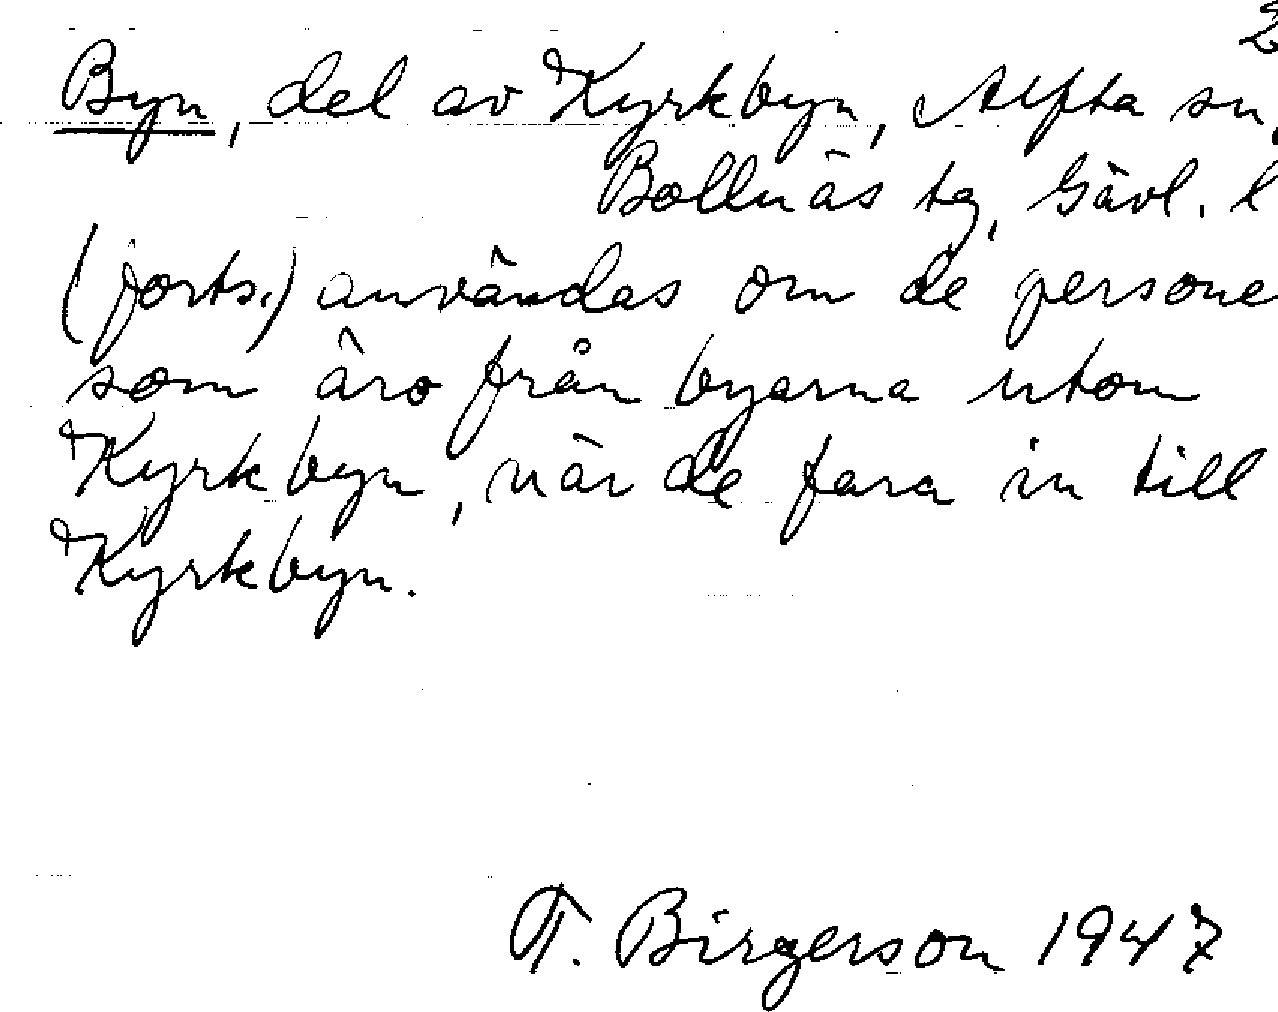 2
Byn, del av Kyrkbyn, Alfta sn,
Bollnäs tg, Gävl. l
(forts.) användas om de persone
som äro från byarna utom
Kyrkbyn, när de fara in till
Kyrkbyn.
T. Birgerson 1947